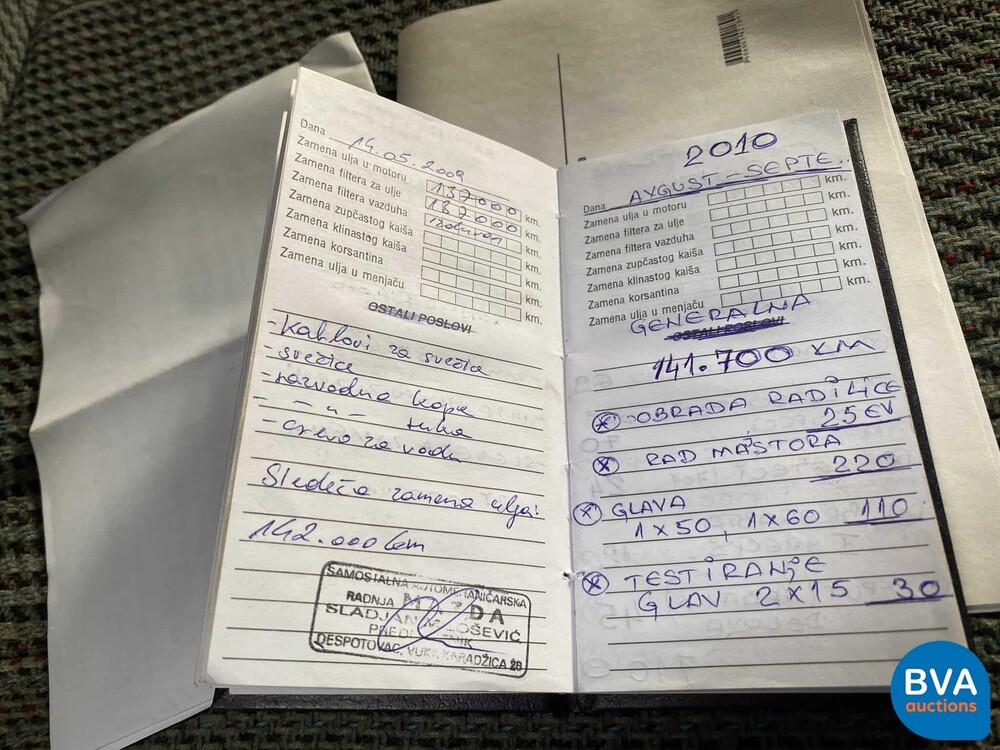 Dana 14.05.2009
Zamena ulja u motoru 137000 km.
Zamena filtera za ulje 137000 km.
Zamena filtera vazduha km.
Zamena zupčastog kaiša km.
Zamena klinastog kaiša km.
Zamena korsantina km.
Zamena ulja u menjaču km.
OSTALI POSLOVI
- Kablovi za svećice
- svećice
- razvodna kapa
- - u - ruka
- crevo za vodu
Sledeća zamena ulja:
142.000 km
SAMOSTALNA AUTOMEHANIČARSKA
RADNJA
SLADJAN
DESPOTOVAC, VUKA KARADŽIĆA 28
2010
Dana AVGUST - SEPTE..
Zamena ulja u motoru km.
Zamena filtera za ulje km.
Zamena filtera vazduha km.
Zamena zupčastog kaiša km.
Zamena klinastog kaiša km.
Zamena korsantina km.
Zamena ulja u menjaču km.
GENERALNA
OSTALI POSLOVI
141.700 KM
OBRADA RADILICE
25 EV
RAD MAJSTORA
220
GLAVA
1 x 50, 1 x 60 110
TESTIRANJE
GLAV 2 x 15 30
BVA
auctions